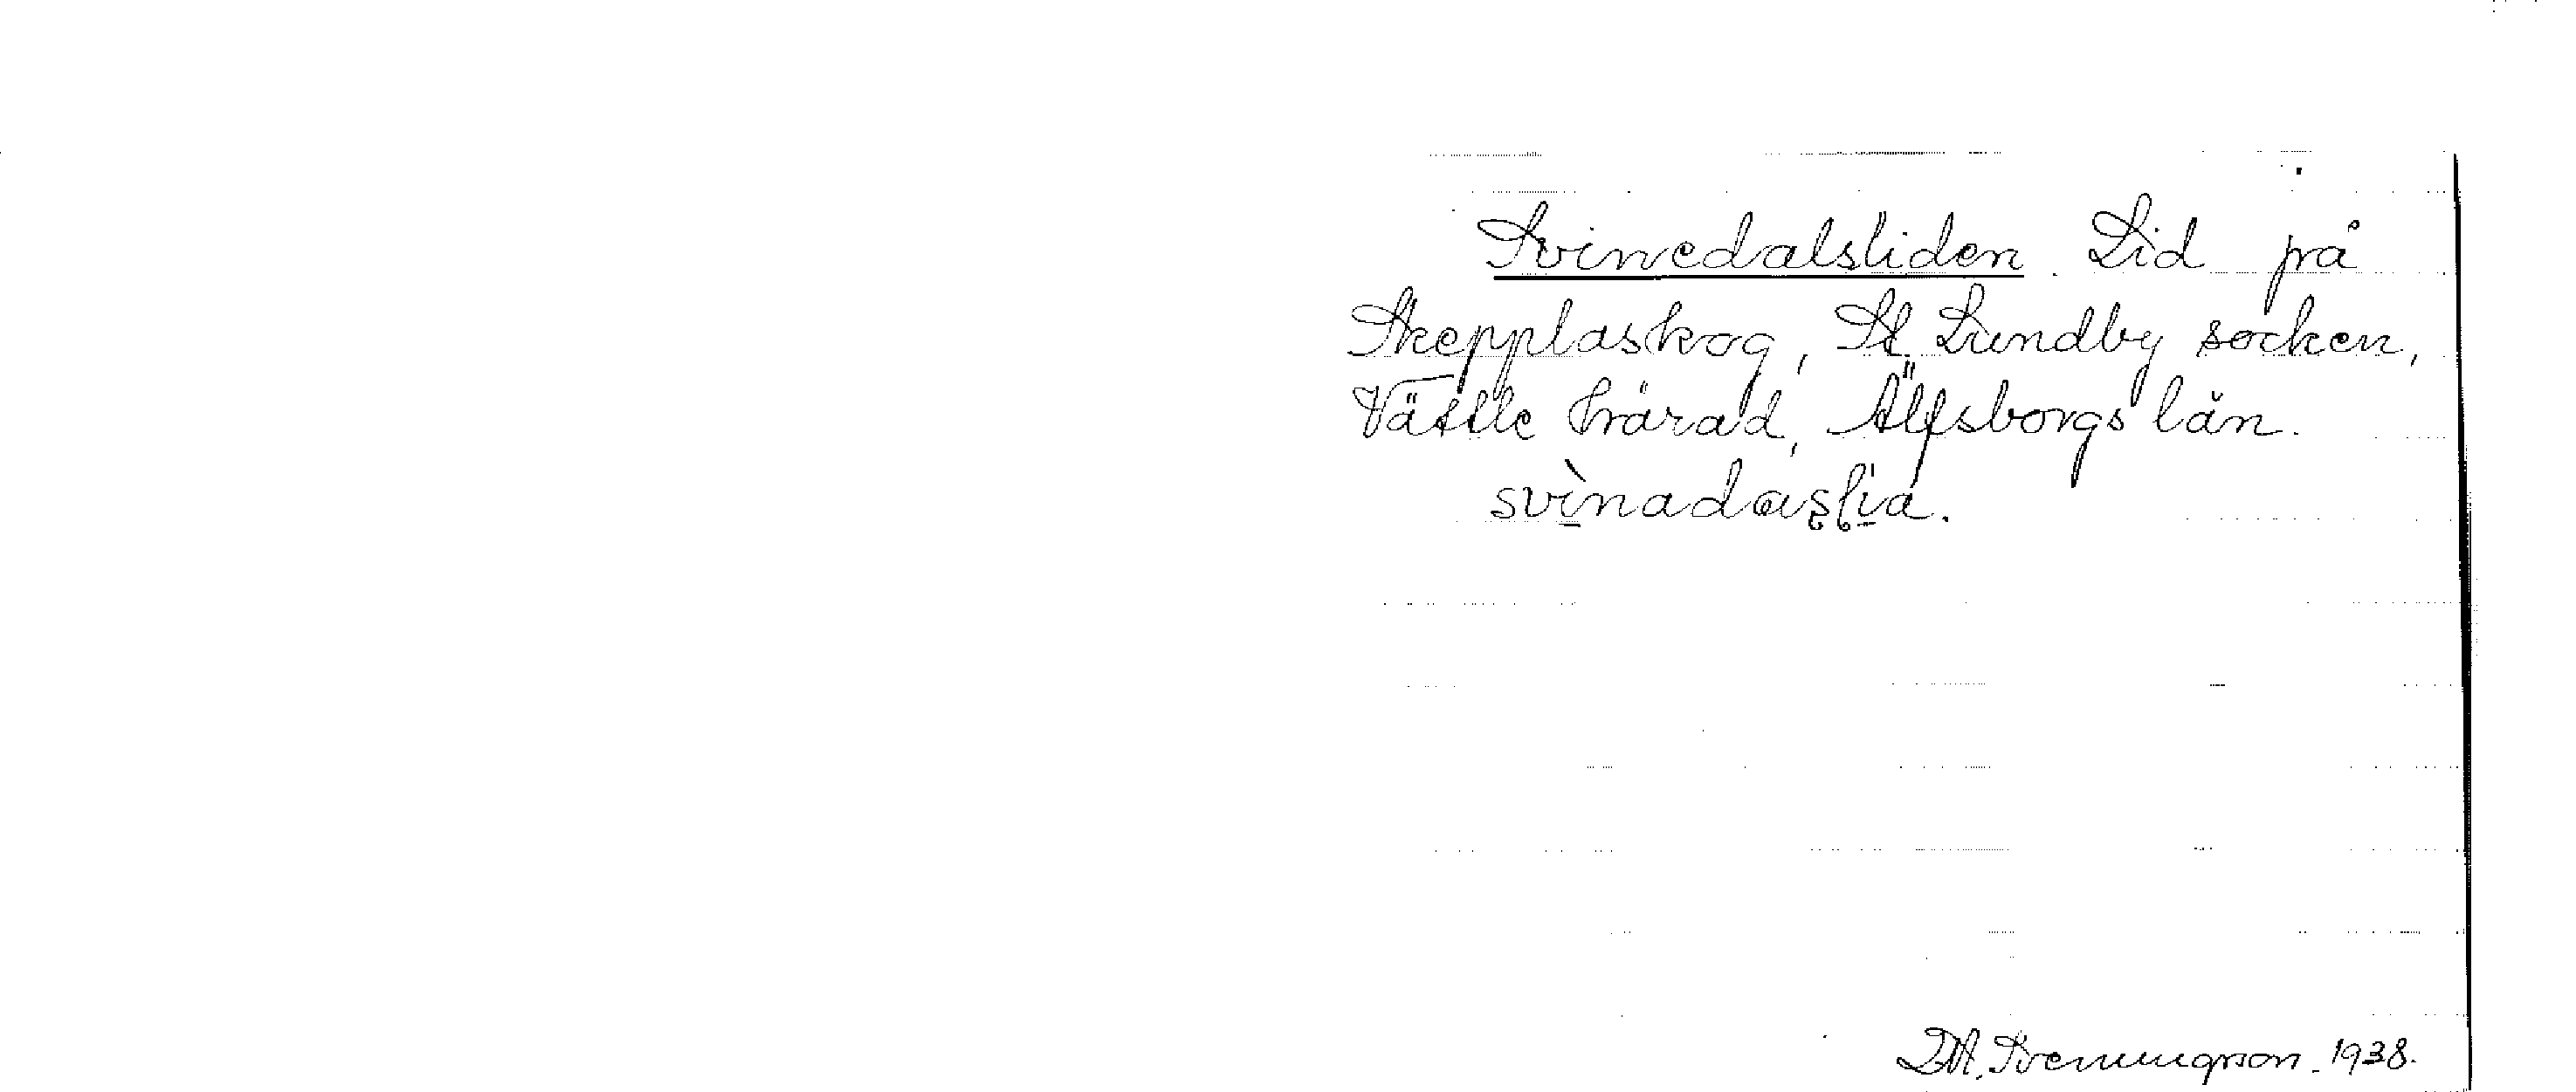 Svinedalsliden. Lid på
Skepplaskog, St. Lundby socken,
Vättle härad, Älfsborgs län.
svìnadaʂlia.
Svenungsson. 1938.